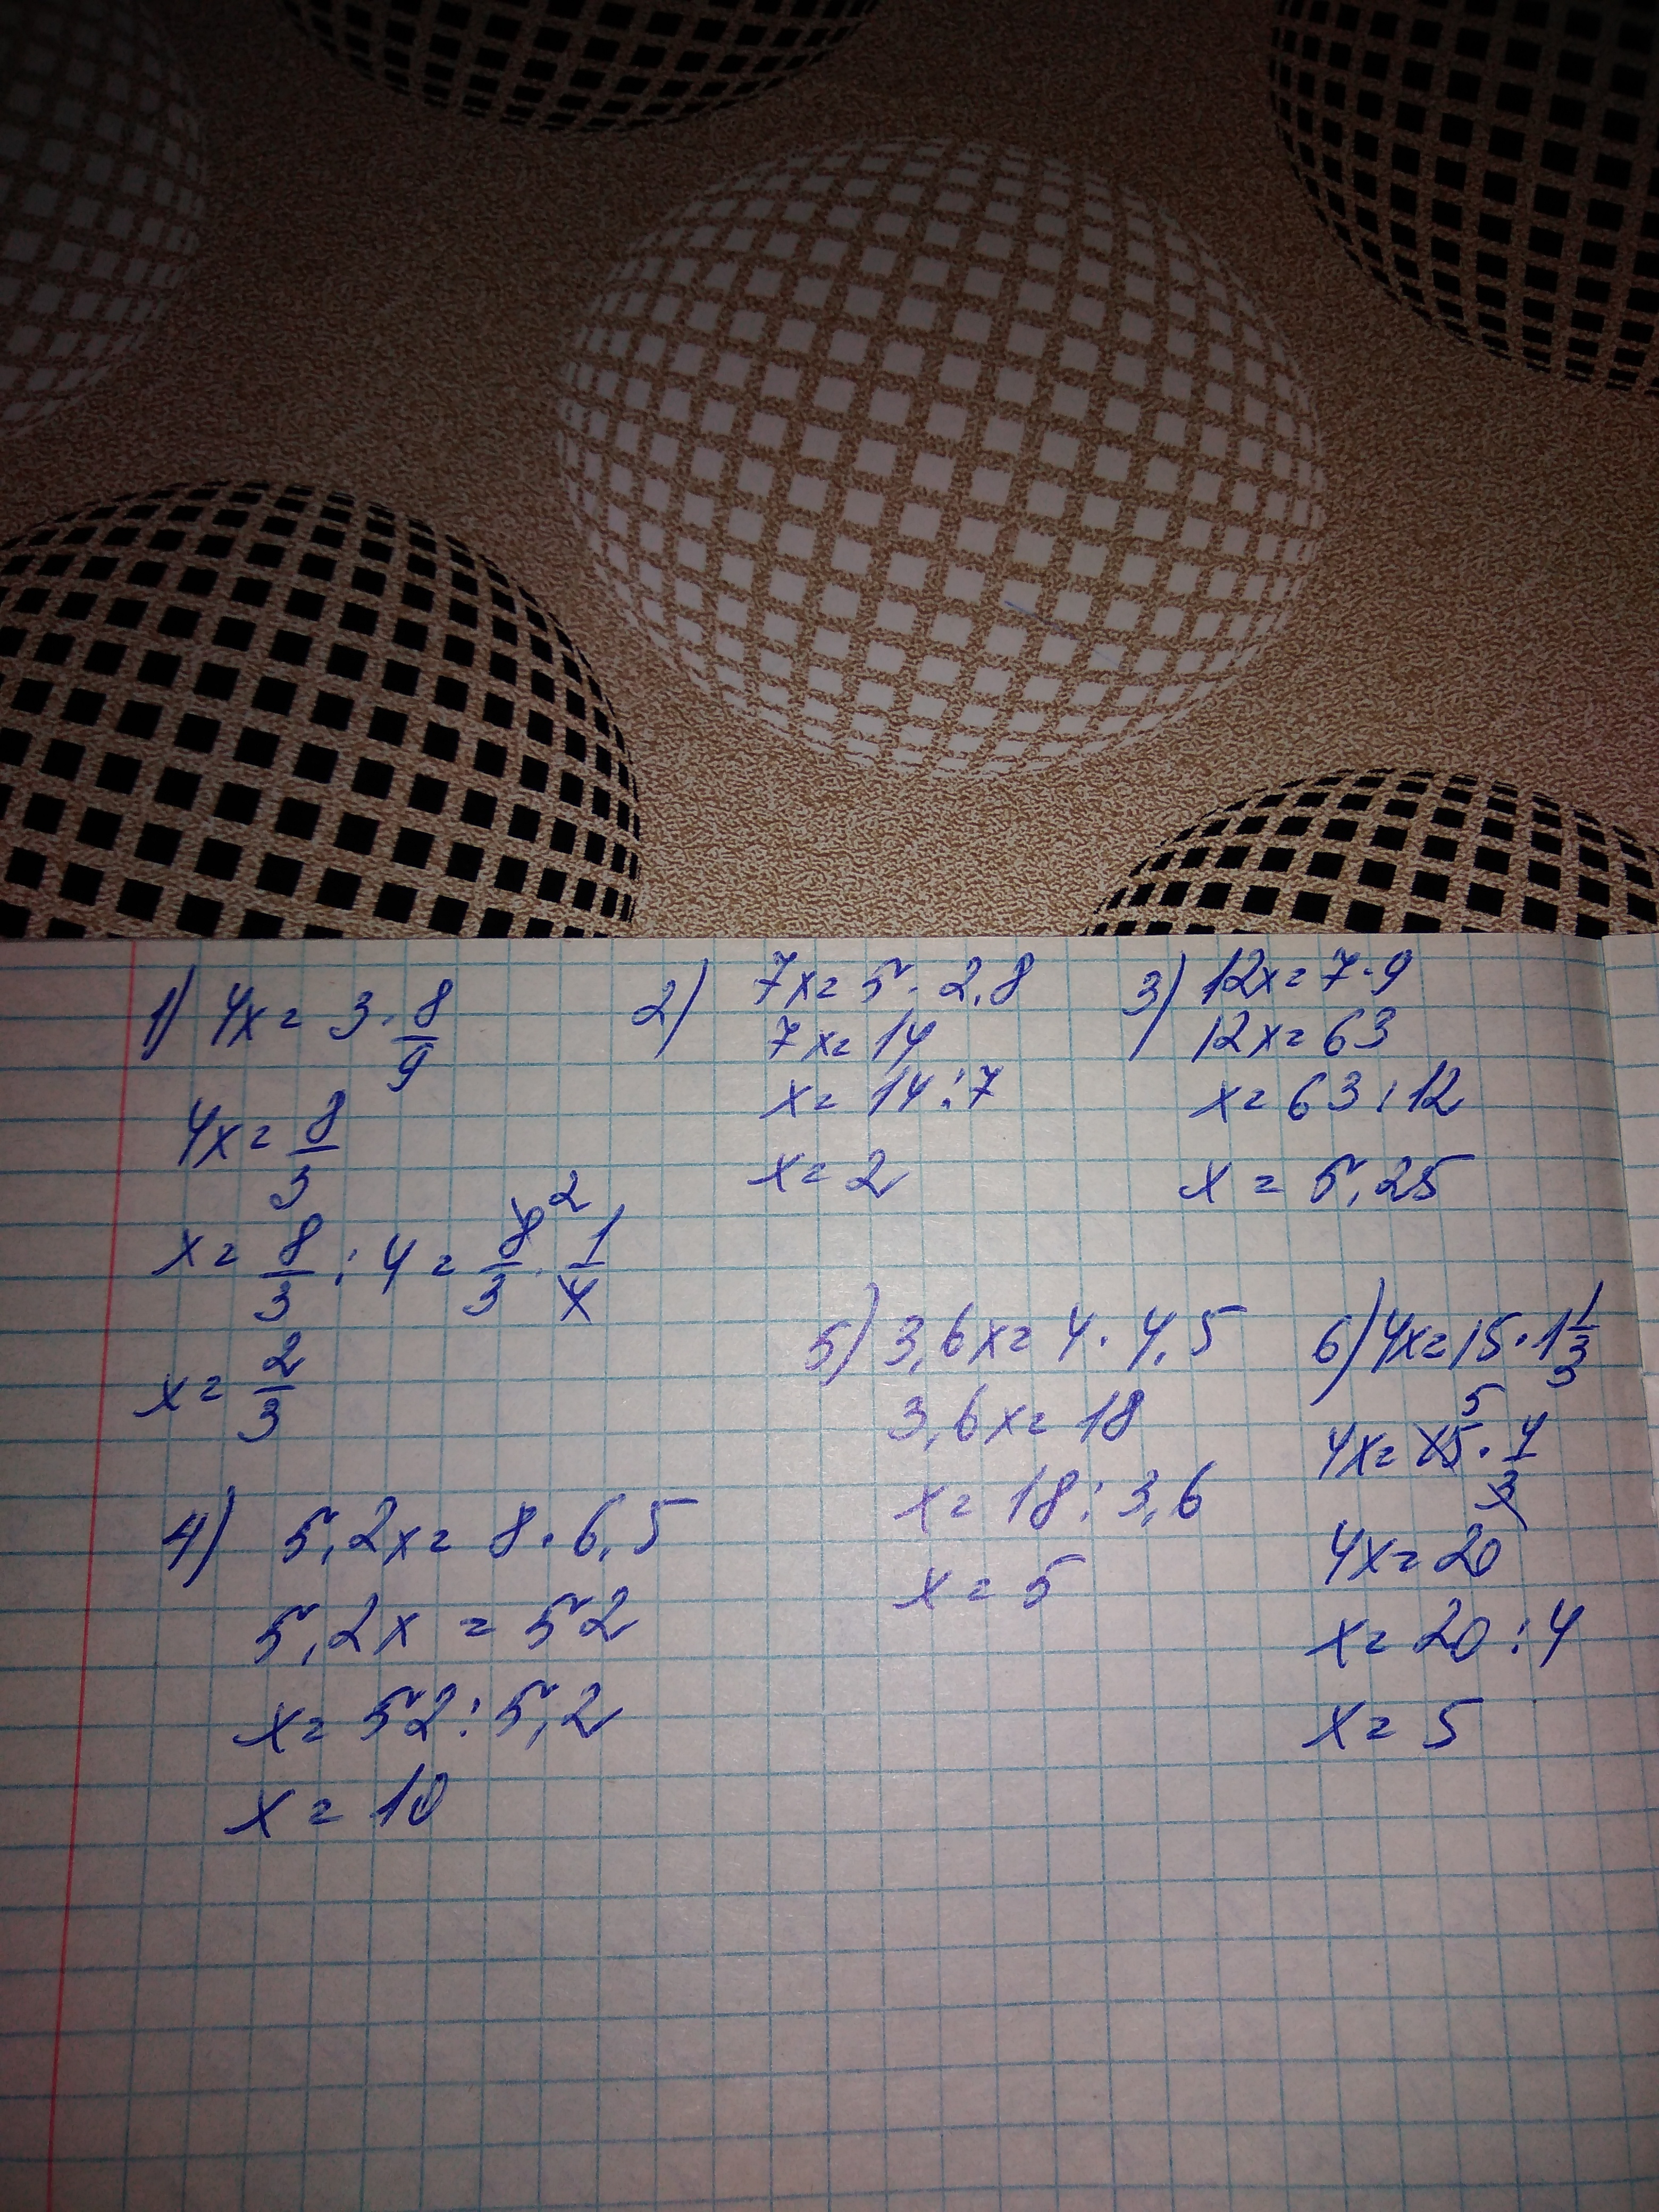 1) 4x = 3 · 8/9
4x = 8/3
x = 8/3 : 4 = 8/3 · 1/4
2
x = 2/3
2) 7x = 5 · 2,8
7x = 14
x = 14 : 7
x = 2
3) 12x = 7 · 9
12x = 63
x = 63 : 12
x = 5,25
4) 5,2x = 8 · 6,5
5,2x = 52
x = 52 : 5,2
x = 10
5) 3,6x = 4 · 4,5
3,6x = 18
x = 18 : 3,6
x = 5
6) 4x = 15 · 1 1/3
5
4x = 15 · 4/3
4x = 20
x = 20 : 4
x = 5